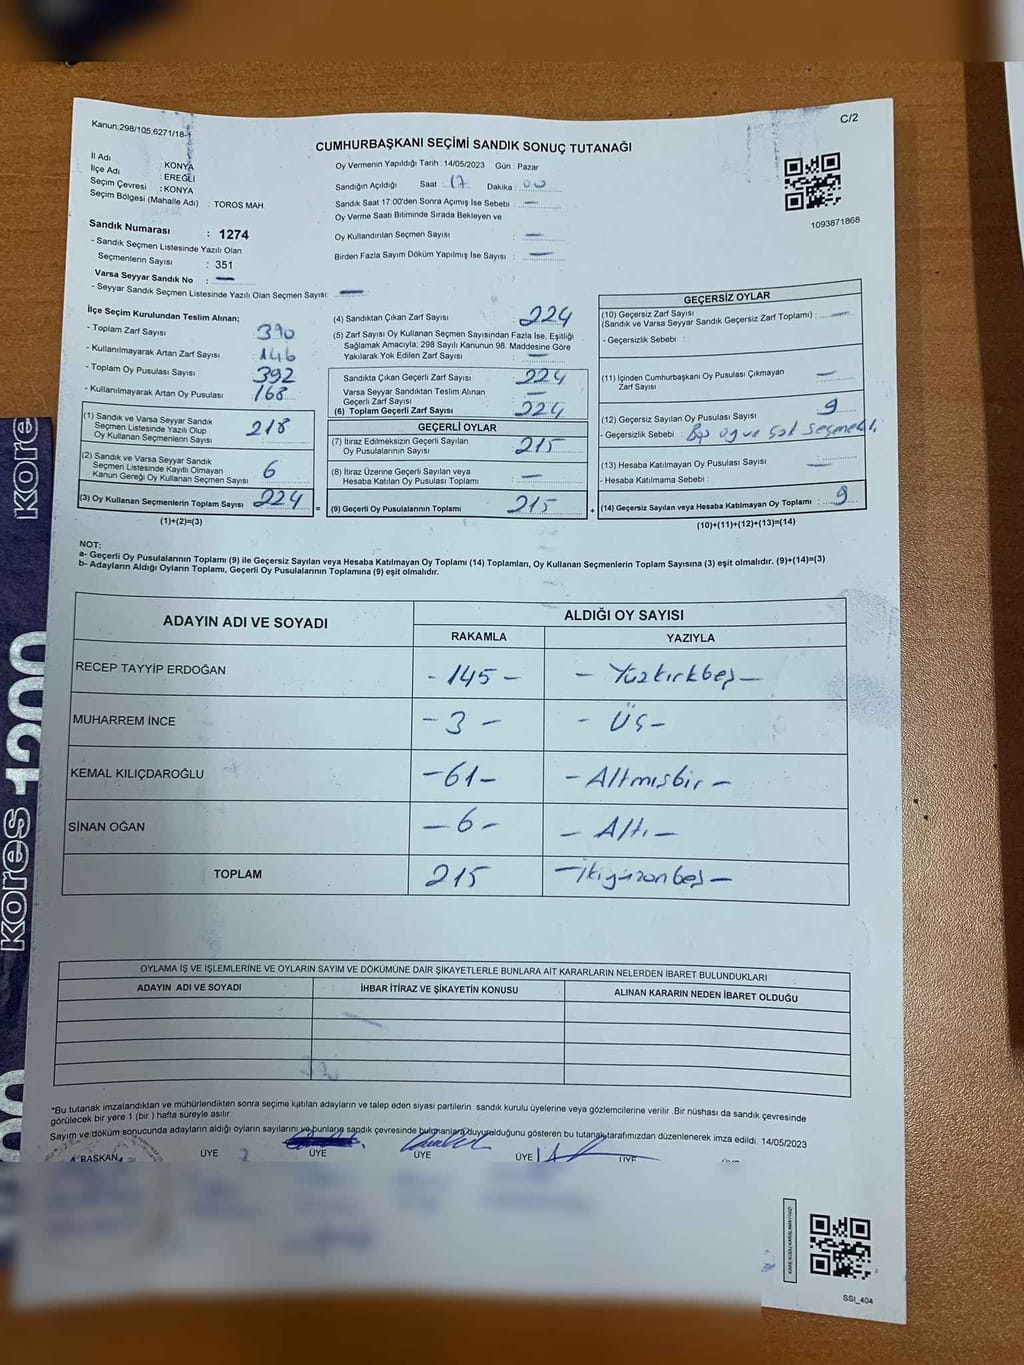 Kanun;298/105,6271/18-1
C/2
CUMHURBAŞKANI SEÇİMİ SANDIK SONUÇ TUTANAĞI
İl Adı : KONYA
İlçe Adı : EREĞLİ
Seçim Çevresi : KONYA
Seçim Bölgesi (Mahalle Adı) : TOROS MAH
Sandık Numarası : 1274
- Sandık Seçmen Listesinde Yazılı Olan
Seçmenlerin Sayısı : 351
Varsa Seyyar Sandık No : —
- Seyyar Sandık Seçmen Listesinde Yazılı Olan Seçmen Sayısı: —
Oy Vermenin Yapıldığı Tarih : 14/05/2023 Gün : Pazar
Sandığın Açıldığı Saat : 17 Dakika : 00
Sandık Saat 17:00'den Sonra Açımış İse Sebebi : —
Oy Verme Saati Bitiminde Sırada Bekleyen ve
Oy Kullandırılan Seçmen Sayısı : —
Birden Fazla Sayım Döküm Yapılmış İse Sayısı : —
1093871868
İlçe Seçim Kurulundan Teslim Alınan;
- Toplam Zarf Sayısı : 390
- Kullanılmayarak Artan Zarf Sayısı : 146
- Toplam Oy Pusulası Sayısı : 392
- Kullanılmayarak Artan Oy Pusulası : 168
(1) Sandık ve Varsa Seyyar Sandık
Seçmen Listesinde Yazılı Olup
Oy Kullanan Seçmenlerin Sayısı 218
(2) Sandık ve Varsa Seyyar Sandık
Seçmen Listesinde Kayıtlı Olmayan
Kanun Gereği Oy Kullanan Seçmen Sayısı 6
(3) Oy Kullanan Seçmenlerin Toplam Sayısı 224
(1)+(2)=(3)
(4) Sandıktan Çıkan Zarf Sayısı : 224
(5) Zarf Sayısı Oy Kullanan Seçmen Sayısından Fazla İse, Eşitliği
Sağlamak Amacıyla; 298 Sayılı Kanunun 98. Maddesine Göre
Yakılarak Yok Edilen Zarf Sayısı : —
Sandıkta Çıkan Geçerli Zarf Sayısı : 224
Varsa Seyyar Sandıktan Teslim Alınan
Geçerli Zarf Sayısı : —
(6) Toplam Geçerli Zarf Sayısı : 224
GEÇERLİ OYLAR
(7) İtiraz Edilmeksizin Geçerli Sayılan
Oy Pusulalarının Sayısı : 215
(8) İtiraz Üzerine Geçerli Sayılan veya
Hesaba Katılan Oy Pusulası Toplamı : —
= (9) Geçerli Oy Pusulalarının Toplamı : 215 +
GEÇERSİZ OYLAR
(10) Geçersiz Zarf Sayısı
(Sandık ve Varsa Seyyar Sandık Geçersiz Zarf Toplamı) : —
- Geçersizlik Sebebi :
(11) İçinden Cumhurbaşkanı Oy Pusulası Çıkmayan
Zarf Sayısı : —
(12) Geçersiz Sayılan Oy Pusulası Sayısı : 9
- Geçersizlik Sebebi : Boş oy ve çok
(13) Hesaba Katılmayan Oy Pusulası Sayısı : —
- Hesaba Katılmama Sebebi :
(14) Geçersiz Sayılan veya Hesaba Katılmayan Oy Toplamı : 9
(10)+(11)+(12)+(13)=(14)
NOT:
a- Geçerli Oy Pusulalarının Toplamı (9) ile Geçersiz Sayılan veya Hesaba Katılmayan Oy Toplamı (14) Toplamları, Oy Kullanan Seçmenlerin Toplam Sayısına (3) eşit olmalıdır. (9)+(14)=(3)
b- Adayların Aldığı Oyların Toplamı, Geçerli Oy Pusulalarının Toplamına (9) eşit olmalıdır.
ADAYIN ADI VE SOYADI ALDIĞI OY SAYISI
RAKAMLA YAZIYLA
RECEP TAYYİP ERDOĞAN -145- - Yüzkırkbeş -
MUHARREM İNCE -3- - Üç -
KEMAL KILIÇDAROĞLU -61- - Altmışbir -
SİNAN OĞAN -6- - Altı -
TOPLAM 215 - İkiyüzonbeş -
OYLAMA İŞ VE İŞLEMLERİNE VE OYLARIN SAYIM VE DÖKÜMÜNE DAİR ŞİKAYETLERLE BUNLARA AİT KARARLARIN NELERDEN İBARET BULUNDUKLARI
ADAYIN ADI VE SOYADI İHBAR İTİRAZ VE ŞİKAYETİN KONUSU ALINAN KARARIN NEDEN İBARET OLDUĞU
*Bu tutanak imzalandıktan ve mühürlendikten sonra seçime katılan adayların ve talep eden siyasi partilerin sandık kurulu üyelerine veya gözlemcilerine verilir .Bir nüshası da sandık çevresinde
görülecek bir yere 1 (bir ) hafta süreyle asılır.
Sayım ve döküm sonucunda adayların aldığı oyların sayılarını ve bunların sandık çevresinde bulunanlara duyurulduğunu gösteren bu tutanak tarafımızdan düzenlenerek imza edildi. 14/05/2023
BAŞKAN ÜYE ÜYE ÜYE ÜYE ÜYE
SSİ_404
kores 1200
kore